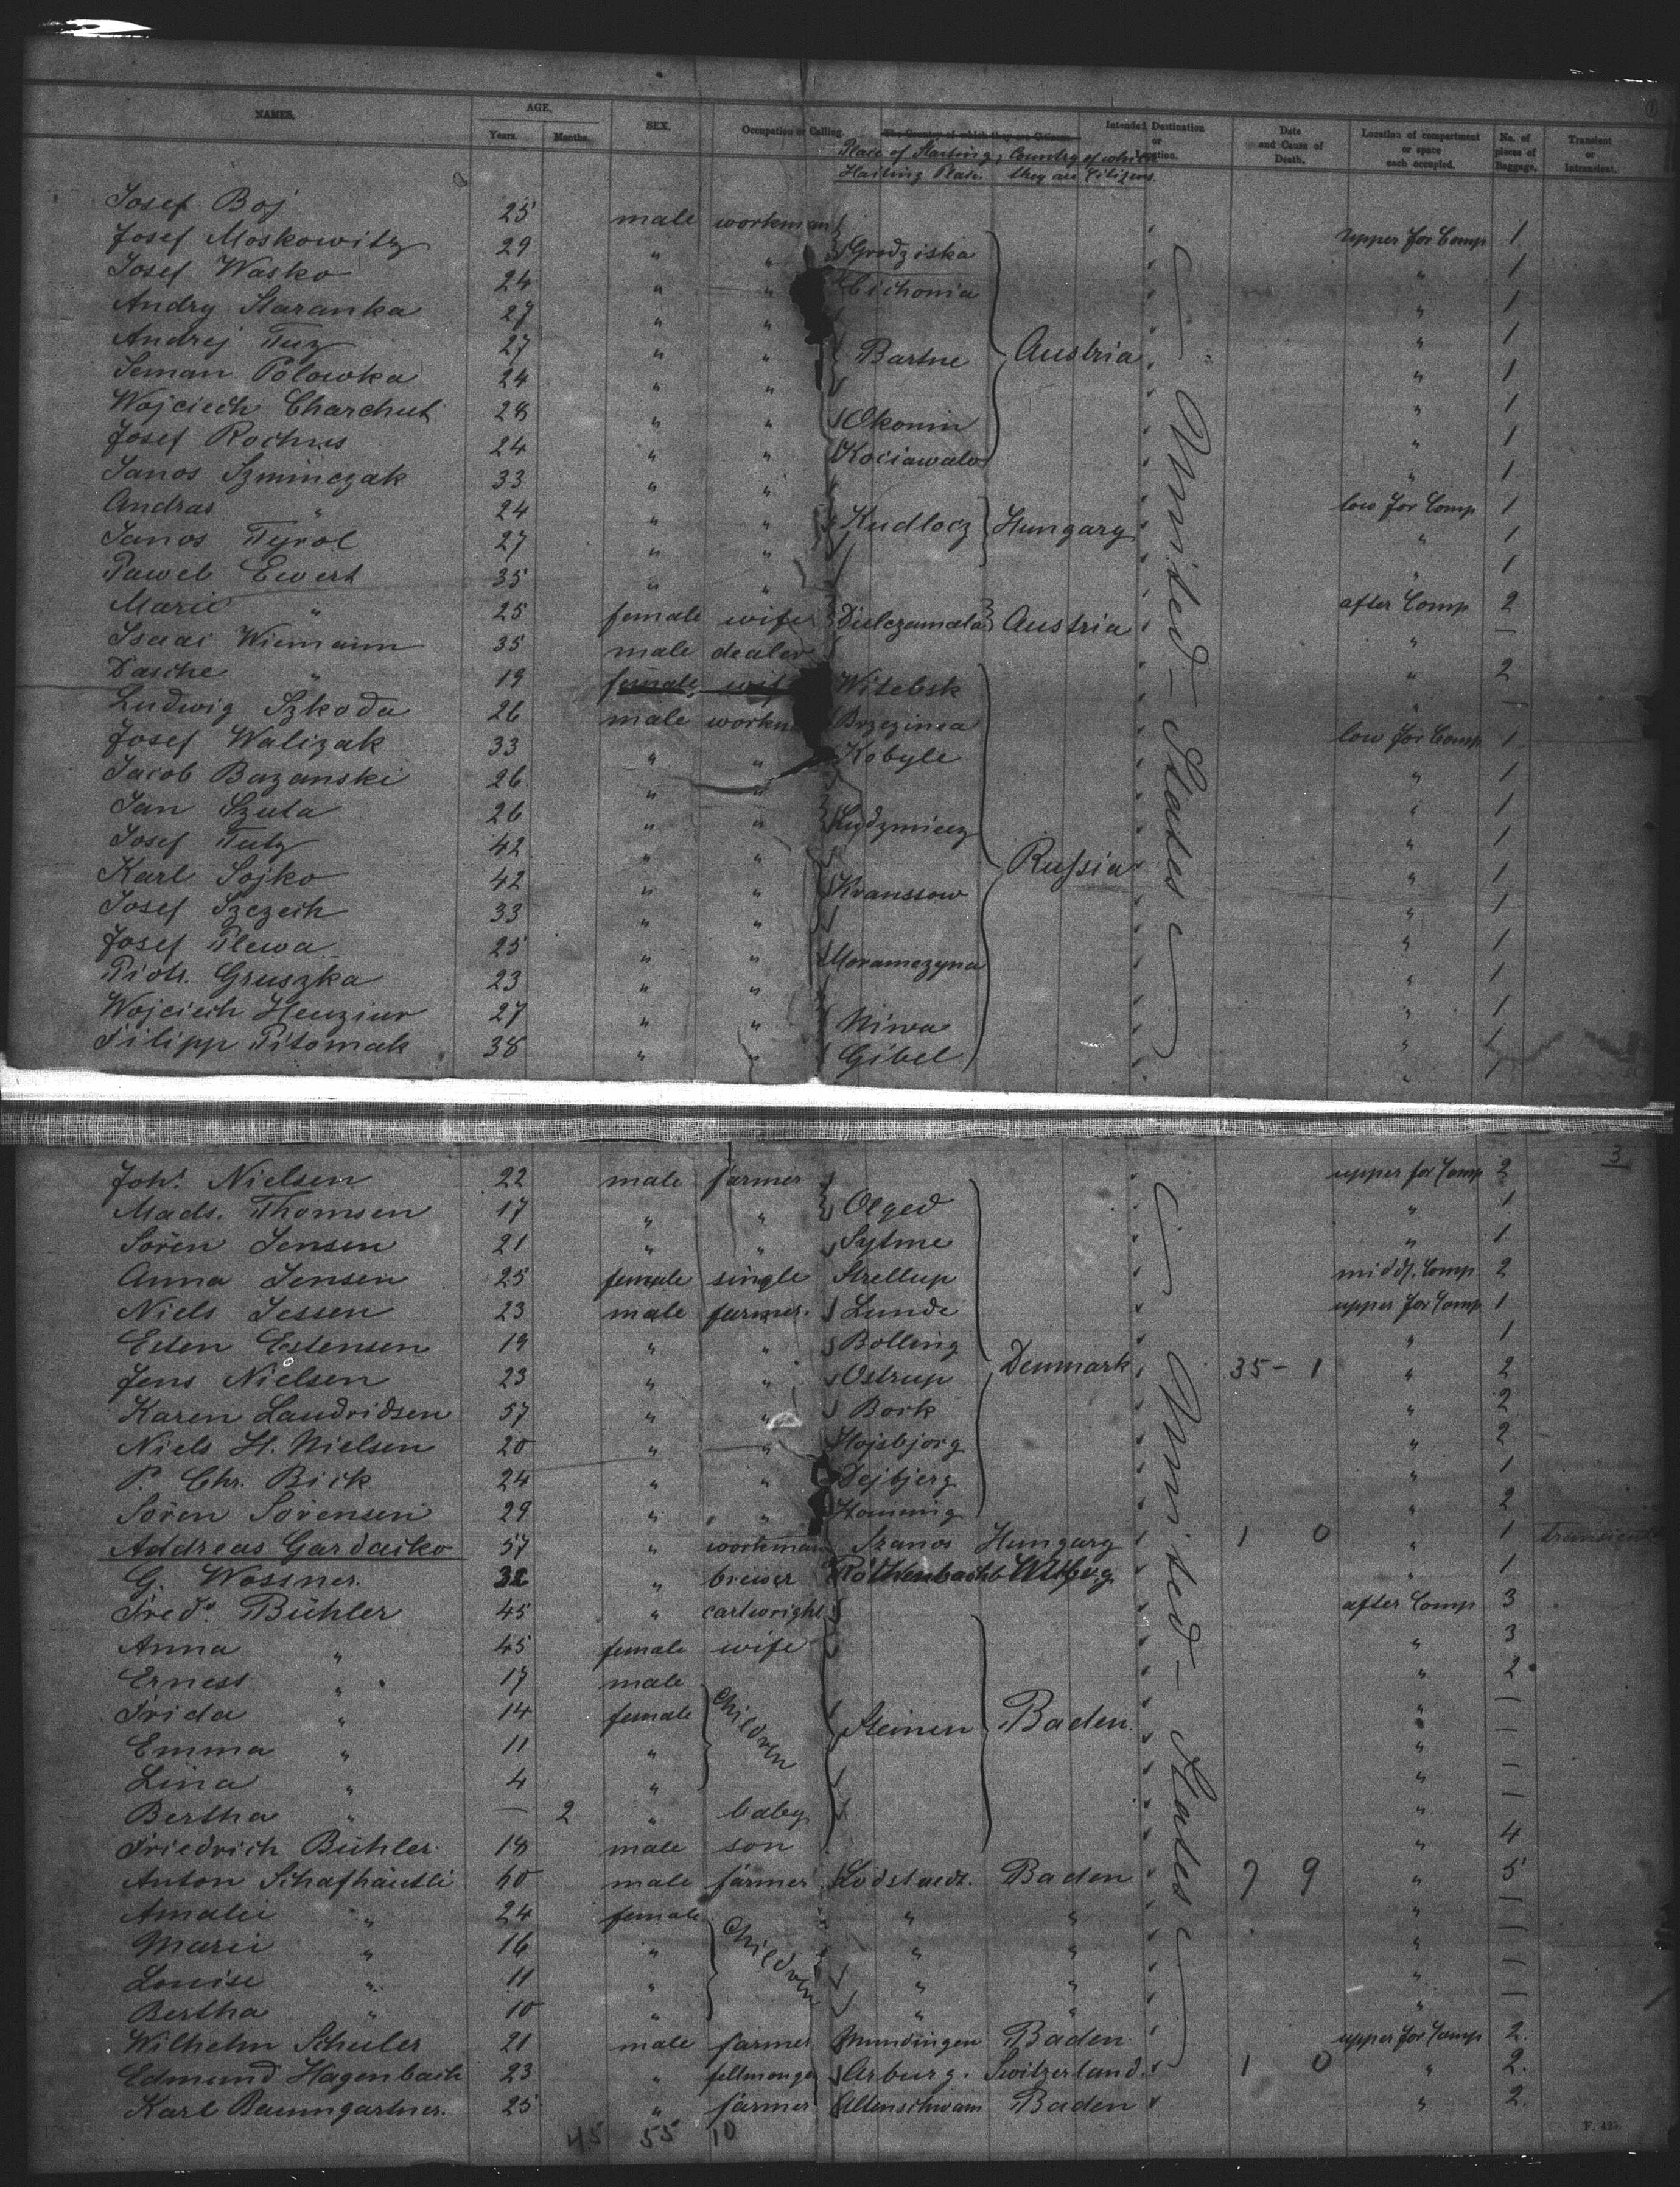 NAMES. AGE. SEX. Occupation or Calling. The Country of which they are Citizens. Intended Destination or Location. Date and Cause of Death. Location of compartment or space each occupied. No. of pieces of Baggage. Transient or Intransient.
Years. Months.
Place of Starting, Country of which
Hailing Place. they are Citizens.
Josef Boj 25 male workman upper for Comp 1
Josef Moskowitz 29 " " Grodziska " 1
Josef Wasko 24 " " Cichonia " 1
Andry Staranka 27 " " " 1
Andrej Tuz 27 " " Bartne Austria " 1
Seman Polowka 24 " " " 1
Wojciech Charchut 28 " " Okonin " 1
Josef Rochus 24 " " Kociawalo " 1
Janos Szminczak 33 " " low for Comp 1
Andras " 24 " " Kudlocz Hungary " 1
Janos Tyrol 27 " " " 1
Pawel Ewert 35 " " after Comp 2
Marie " 25 female wife Dielczamala Austria " —
Isaac Wiemann 35 male dealer " 2
Dasche " 19 female wif Witebsk " —
Ludwig Szkoda 26 male workm Brzezinea low for Comp 1
Josef Walizak 33 " " Kobyle " 1
Jacob Bazanski 26 " " " 1
Jan Szuta 26 " " Ludzmierz " 1
Josef Tutz 42 " " " 1
Karl Sojko 42 " " Kranssow Russia " 1
Josef Szczech 33 " " " 1
Josef Plewa 25 " " Moramczyna " 1
Piotr. Gruszka 23 " " " 1
Wojciech Henziur 27 " " Niwa " 1
Filipp Pitomak 38 " " Gibel " 1
United States
3
Joh. Nielsen 22 male farmer upper for Comp 2
Mads. Thomsen 17 " " Olged " 1
Sören Jensen 21 " " Sytme " 1
Anna Jensen 25 female single Strellup middl. Comp 2
Niels Jessen 23 male farmer. Lunde upper for Comp 1
Esten Estensen 19 " " Bolling " 1
Jens Nielsen 23 " " Ostrup Denmark 35 - 1 " 2
Karen Laudridsen 57 " " Bork " 2
Niels H. Nielsen 20 " " Hojsbjorg " 2
P. Chr. Bick 24 " " Dejbjerg " 1
Sören Sörensen 29 " " Homming " 2
Addreas Gardaiko 57 " workman Szanos Hungary 1 0 " 1 transient
G. Wossner. 32 " brewer Röthenbach Wtbg. " 1
Fred. Bühler 45 " cartwright after Comp 3
Anna " 45 female wife " 3
Ernest " 17 male " 2
Frida " 14 female children Steinen Baden. " —
Emma " 11 " " —
Lina " 4 " " —
Bertha " — 2 " baby " —
Friedrich Bühler 18 male son " 4
Anton Schafhäutli 60 male farmer Lodstaedt. Baden 7 9 " 5
Amalie " 24 female " " " —
Marie " 16 " children " " " —
Louise " 11 " " " " —
Bertha " 10 " " " " —
Wilhelm Schuler 21 male farmer Mundingen Baden upper for Comp 2.
Edmund Hagenbach 23 " fellmonger Arburg. Switzerland. 1 0 " 2.
Karl Baumgartner. 25 " farmer Altenschwam Baden " 2.
United States
45 55 10
F. 425.